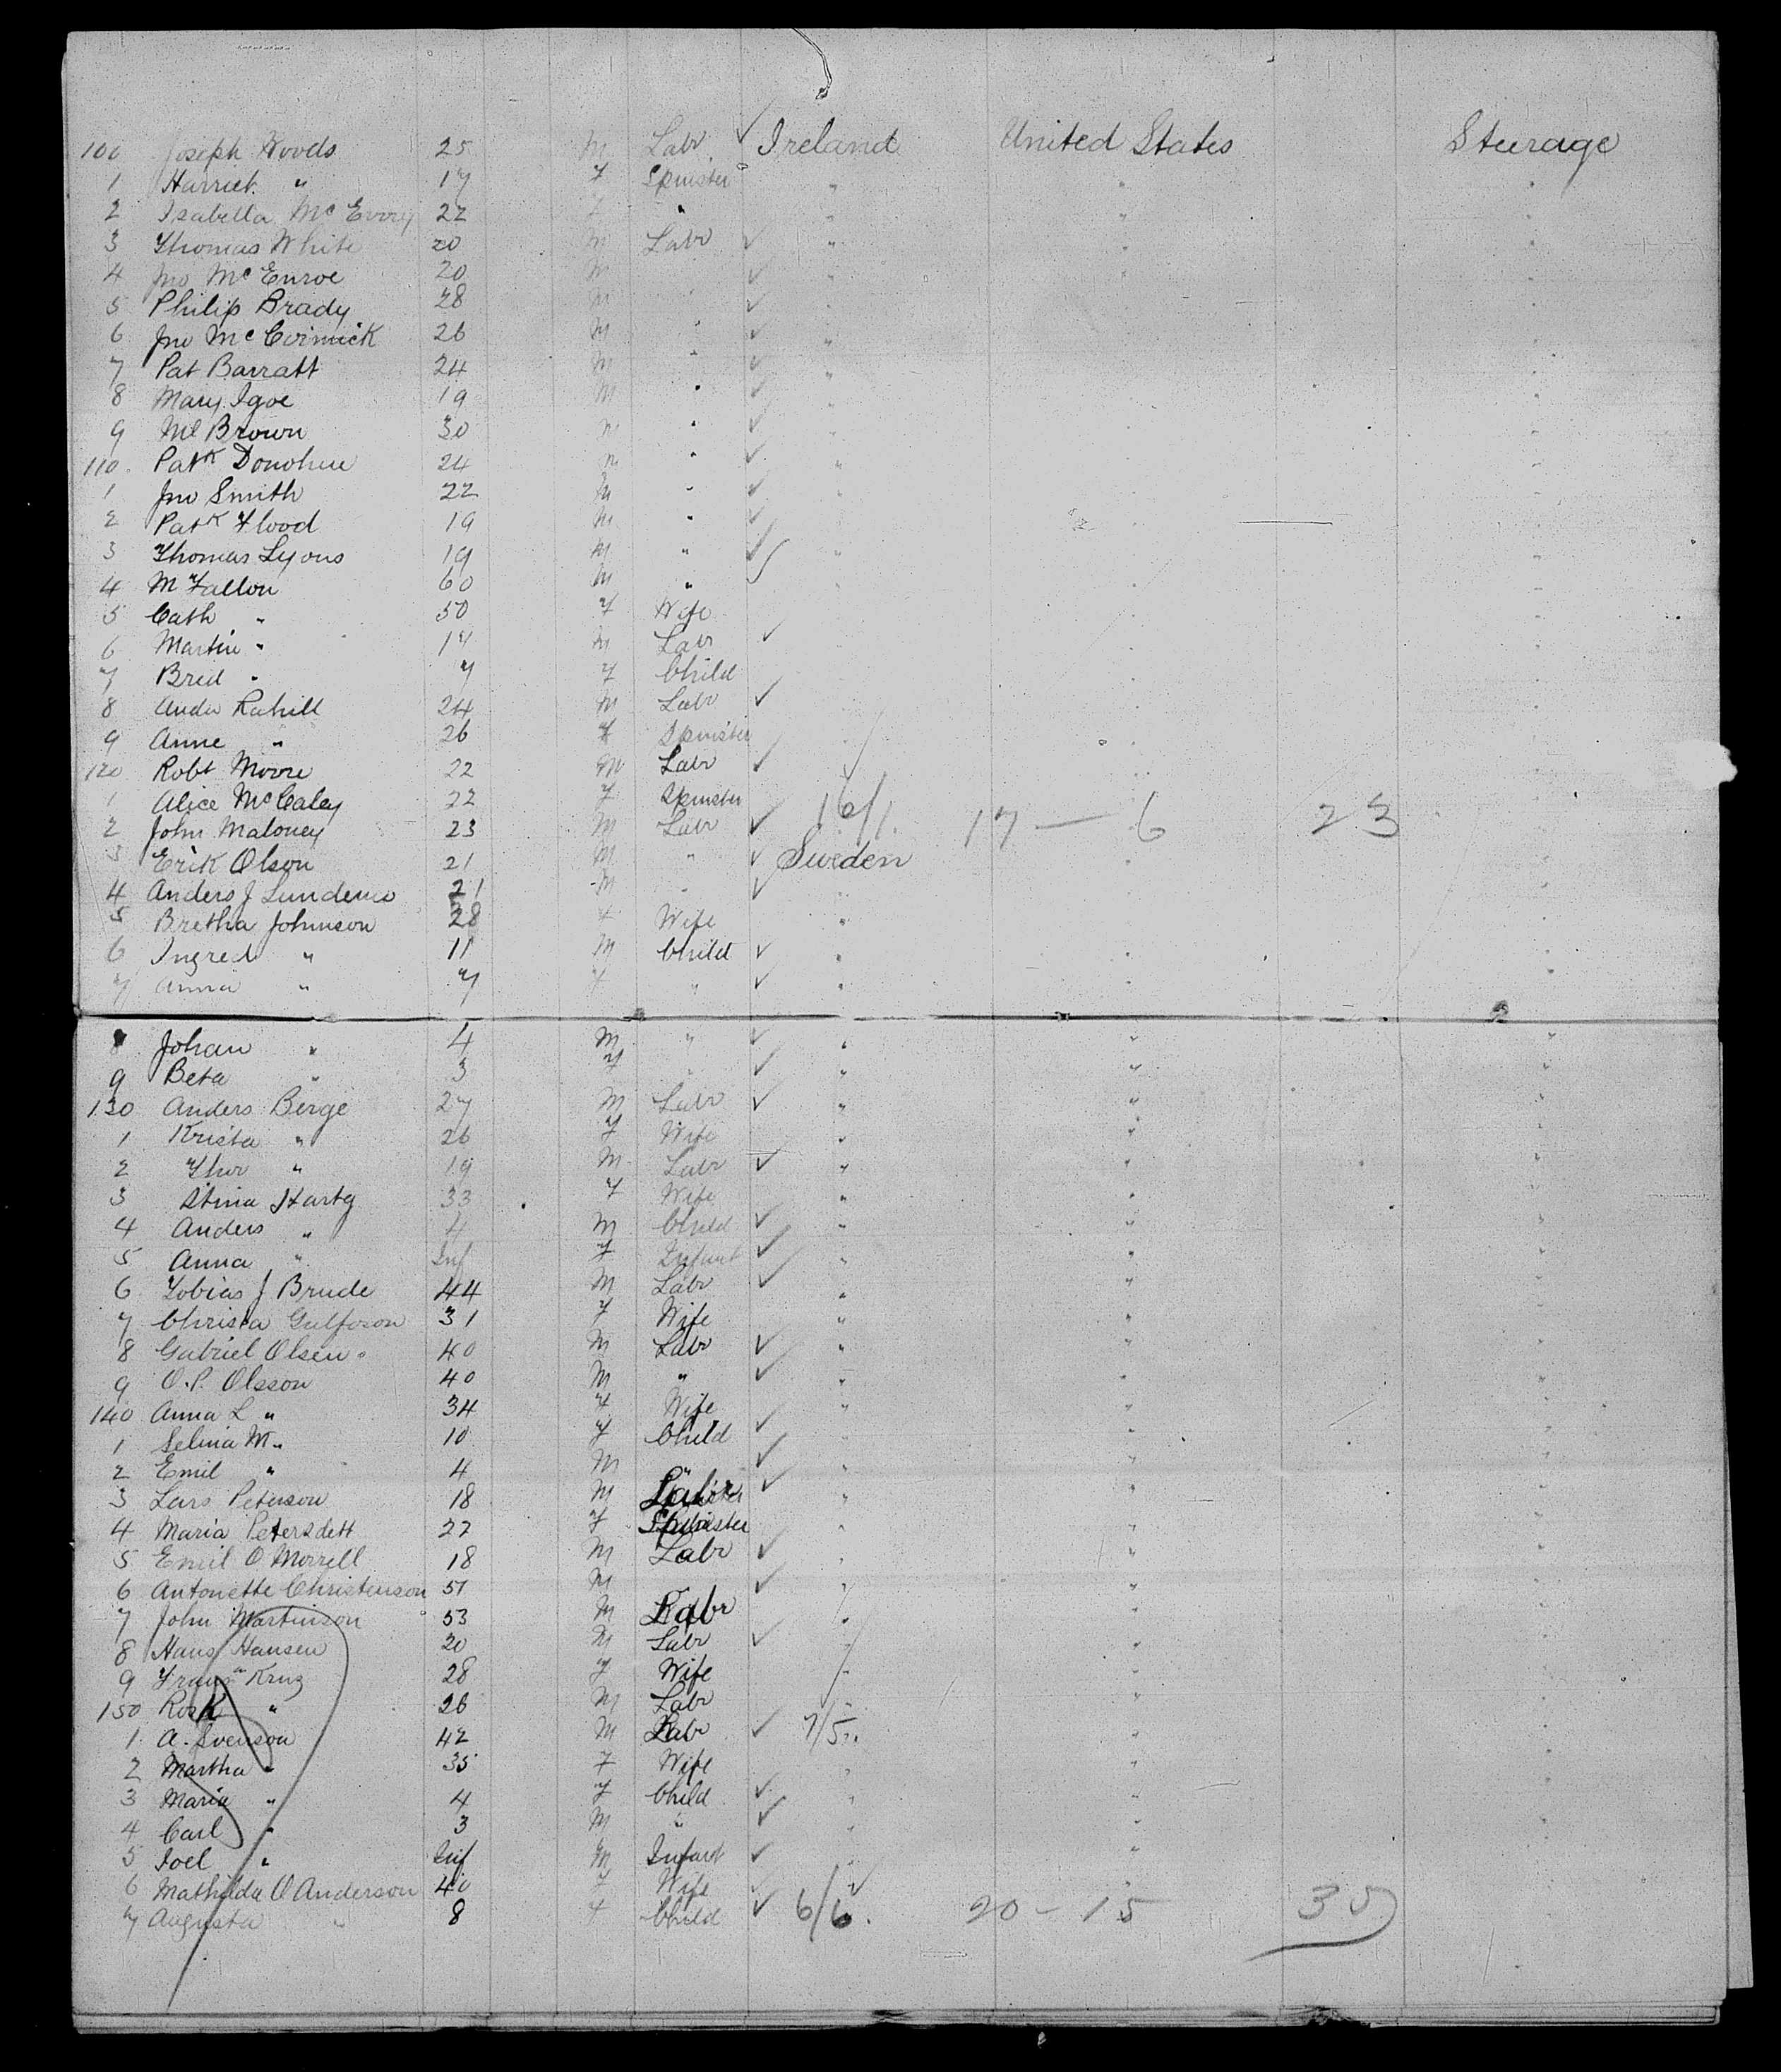 100 Joseph Woods 25 M Labr ✓ Ireland United States Steerage
1 Harriet " 17 F Spinster " " "
2 Isabella McEvoy 22 F " " " "
3 Thomas White 20 M Labr ✓ " " "
4 Jno McEnroe 20 M " ✓ " " "
5 Philip Brady 28 M " ✓ " "
6 Jno McCormick 26 M " ✓ " "
7 Pat Barratt 24 M " ✓ " "
8 Mary Igoe 19 M " ✓ " "
9 Ml Brown 30 M " ✓ " "
110 Patk Donohue 24 M " ✓ " "
1 Jno Smith 22 M " ✓ " "
2 Patk Flood 19 M " ✓ "
3 Thomas Lyons 19 M " ✓ " "
4 M Fallon 60 M " " "
5 Cath " 50 F Wife
6 Martin " 17 M Labr ✓
7 Brid " 7 F Child
8 Andw Rahill 24 M Labr ✓
9 Anne " 26 F Spinster
120 Robt Moore 22 M Labr ✓
1 Alice McCaley 22 F Spinster
2 John Maloney 23 M Labr ✓ 16/1 17 — 6 23
3 Erik Olson 21 M " ✓ Sweden
4 Anders J 21 M " ✓ "
5 Bretha Johnson 28 F Wife "
6 Ingred " 11 M Child ✓ "
7 Anna " 7 F " ✓ "
8 Johan " 4 M " ✓ " " "
9 Beta " 3 F " ✓ " " "
130 Anders Berge 27 M Labr ✓ " " "
1 Krista " 26 F Wife " " "
2 Thor " 19 M Labr ✓ " " "
3 Stina Hartg 33 F Wife " " "
4 Anders " 4 M Child ✓ " " "
5 Anna " Inf F Infant ✓ " " "
6 Tobias J Brude 44 M Labr ✓ " " "
7 Christa 31 F Wife " " "
8 Gabriel Olsen 40 M Labr ✓ " " "
9 O.P. Olsson 40 M " ✓ " "
140 Anna L " 34 F Wife " " "
1 Selina M " 10 F Child ✓ " " "
2 Emil " 4 M " ✓ " " "
3 Lars Peterson 18 M Labr ✓ " " "
4 Maria Petersdett 22 F Spinster " " "
5 Emil O Morrell 18 M Labr ✓ " " "
6 Antonette Christenson 51 M ✓ " " "
7 John Martinson 53 M Labr " " "
8 Hans Hansen 20 M Labr ✓ " " "
9 Franz Kruz 28 F Wife " " "
150 " 26 M Labr " " "
1 A. Svenson 42 M Labr ✓ 7/5 " "
2 Martha " 35 F Wife " " "
3 Maria " 4 F Child ✓ " " "
4 Carl " 3 M " ✓ " " "
5 Joel " Inf M Infant ✓ " " "
6 Mathilda O Anderson 40 F Wife ✓ "
7 Augusta " 8 F Child ✓ 6/6. 20 — 15 35